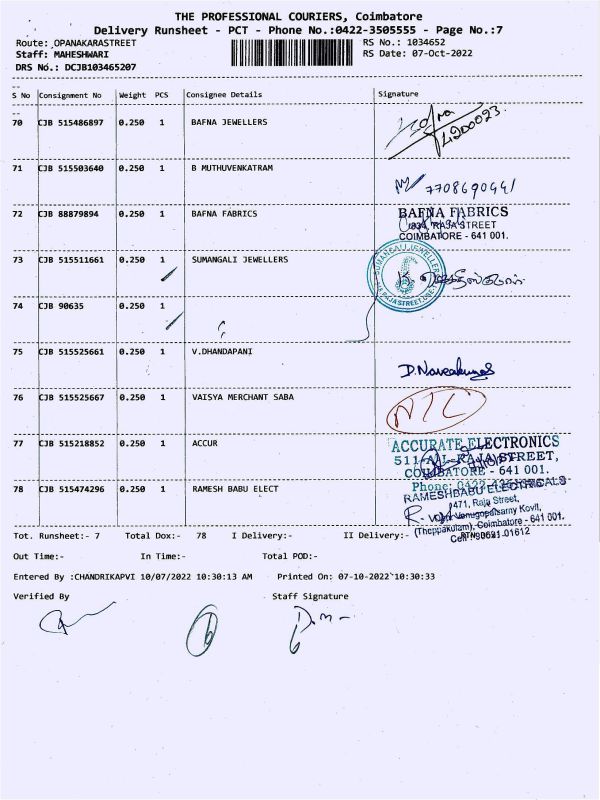 THE PROFESSIONAL COURIERS, Coimbatore
Delivery Runsheet - PCT - Phone No.:0422-3505555 - Page No.:7
Route: OPANAKARASTREET RS No.: 1034652
Staff: MAHESHWARI RS Date: 07-Oct-2022
DRS No.: DCJB103465207
S No Consignment No Weight PCS Consignee Details Signature
70 CJB 515486897 0.250 1 BAFNA JEWELLERS
71 CJB 515503640 0.250 1 B MUTHUVENKATRAM
7708690441
72 CJB 88879894 0.250 1 BAFNA FABRICS BAFNA FABRICS
RAJA STREET
COIMBATORE - 641 001.
73 CJB 515511661 0.250 1 SUMANGALI JEWELLERS SUMANGALI JEWELLERS
RAJA STREET
74 CJB 90635 0.250 1
75 CJB 515525661 0.250 1 V.DHANDAPANI
76 CJB 515525667 0.250 1 VAISYA MERCHANT SABA
77 CJB 515218852 0.250 1 ACCUR ACCURATE ELECTRONICS
RAJA STREET,
COIMBATORE - 641 001.
Phone: 0422
78 CJB 515474296 0.250 1 RAMESH BABU ELECT RAMESHBABU ELECTRICALS
471, Raja Street,
Venugopalsamy Kovil,
(Theppakulam), Coimbatore - 641 001.
Tot. Runsheet:- 7 Total Dox:- 78 I Delivery:- II Delivery:-
Out Time:- In Time:- Total POD:-
Entered By :CHANDRIKAPVI 10/07/2022 10:30:13 AM Printed On: 07-10-2022 10:30:33
Verified By Staff Signature